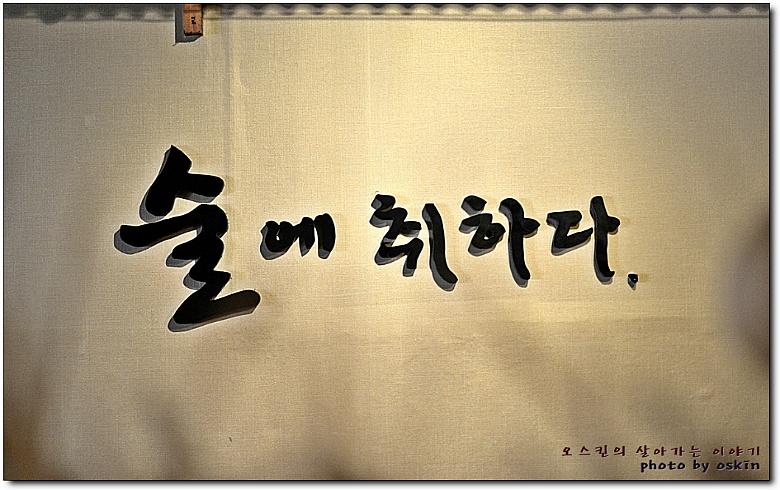 술에 취하다.
오스킨의 살아가는 이야기
photo by oskin